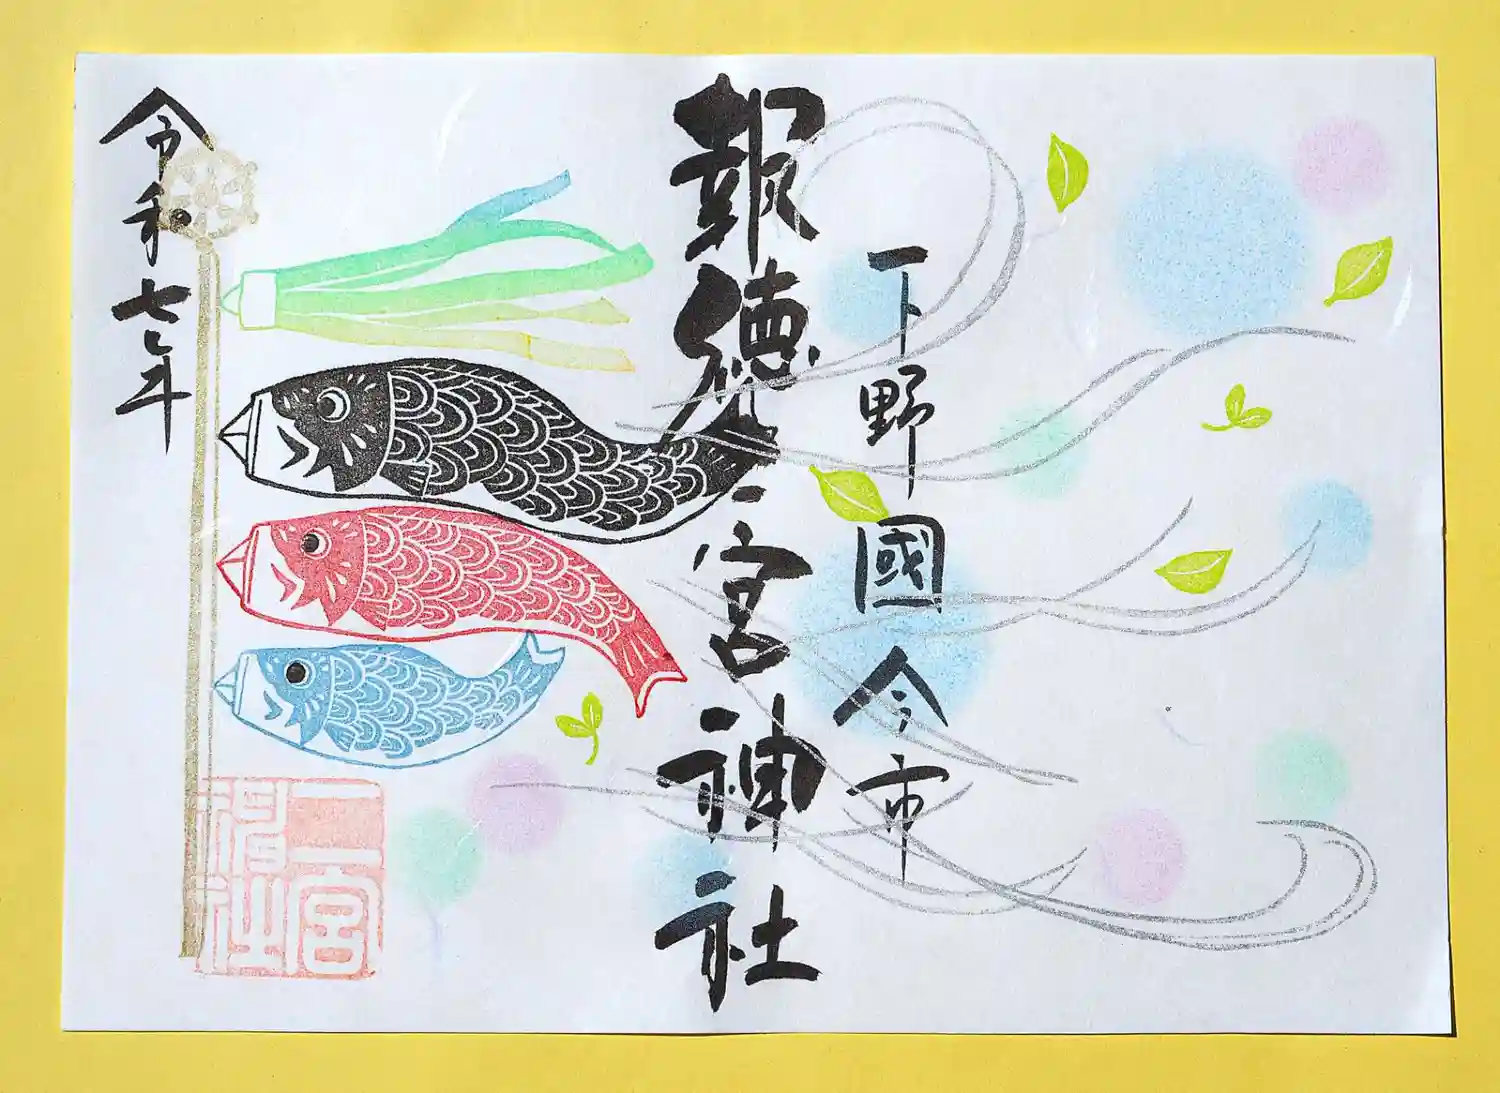 下野國今市
報徳二宮神社
令和七年
二宮
神社